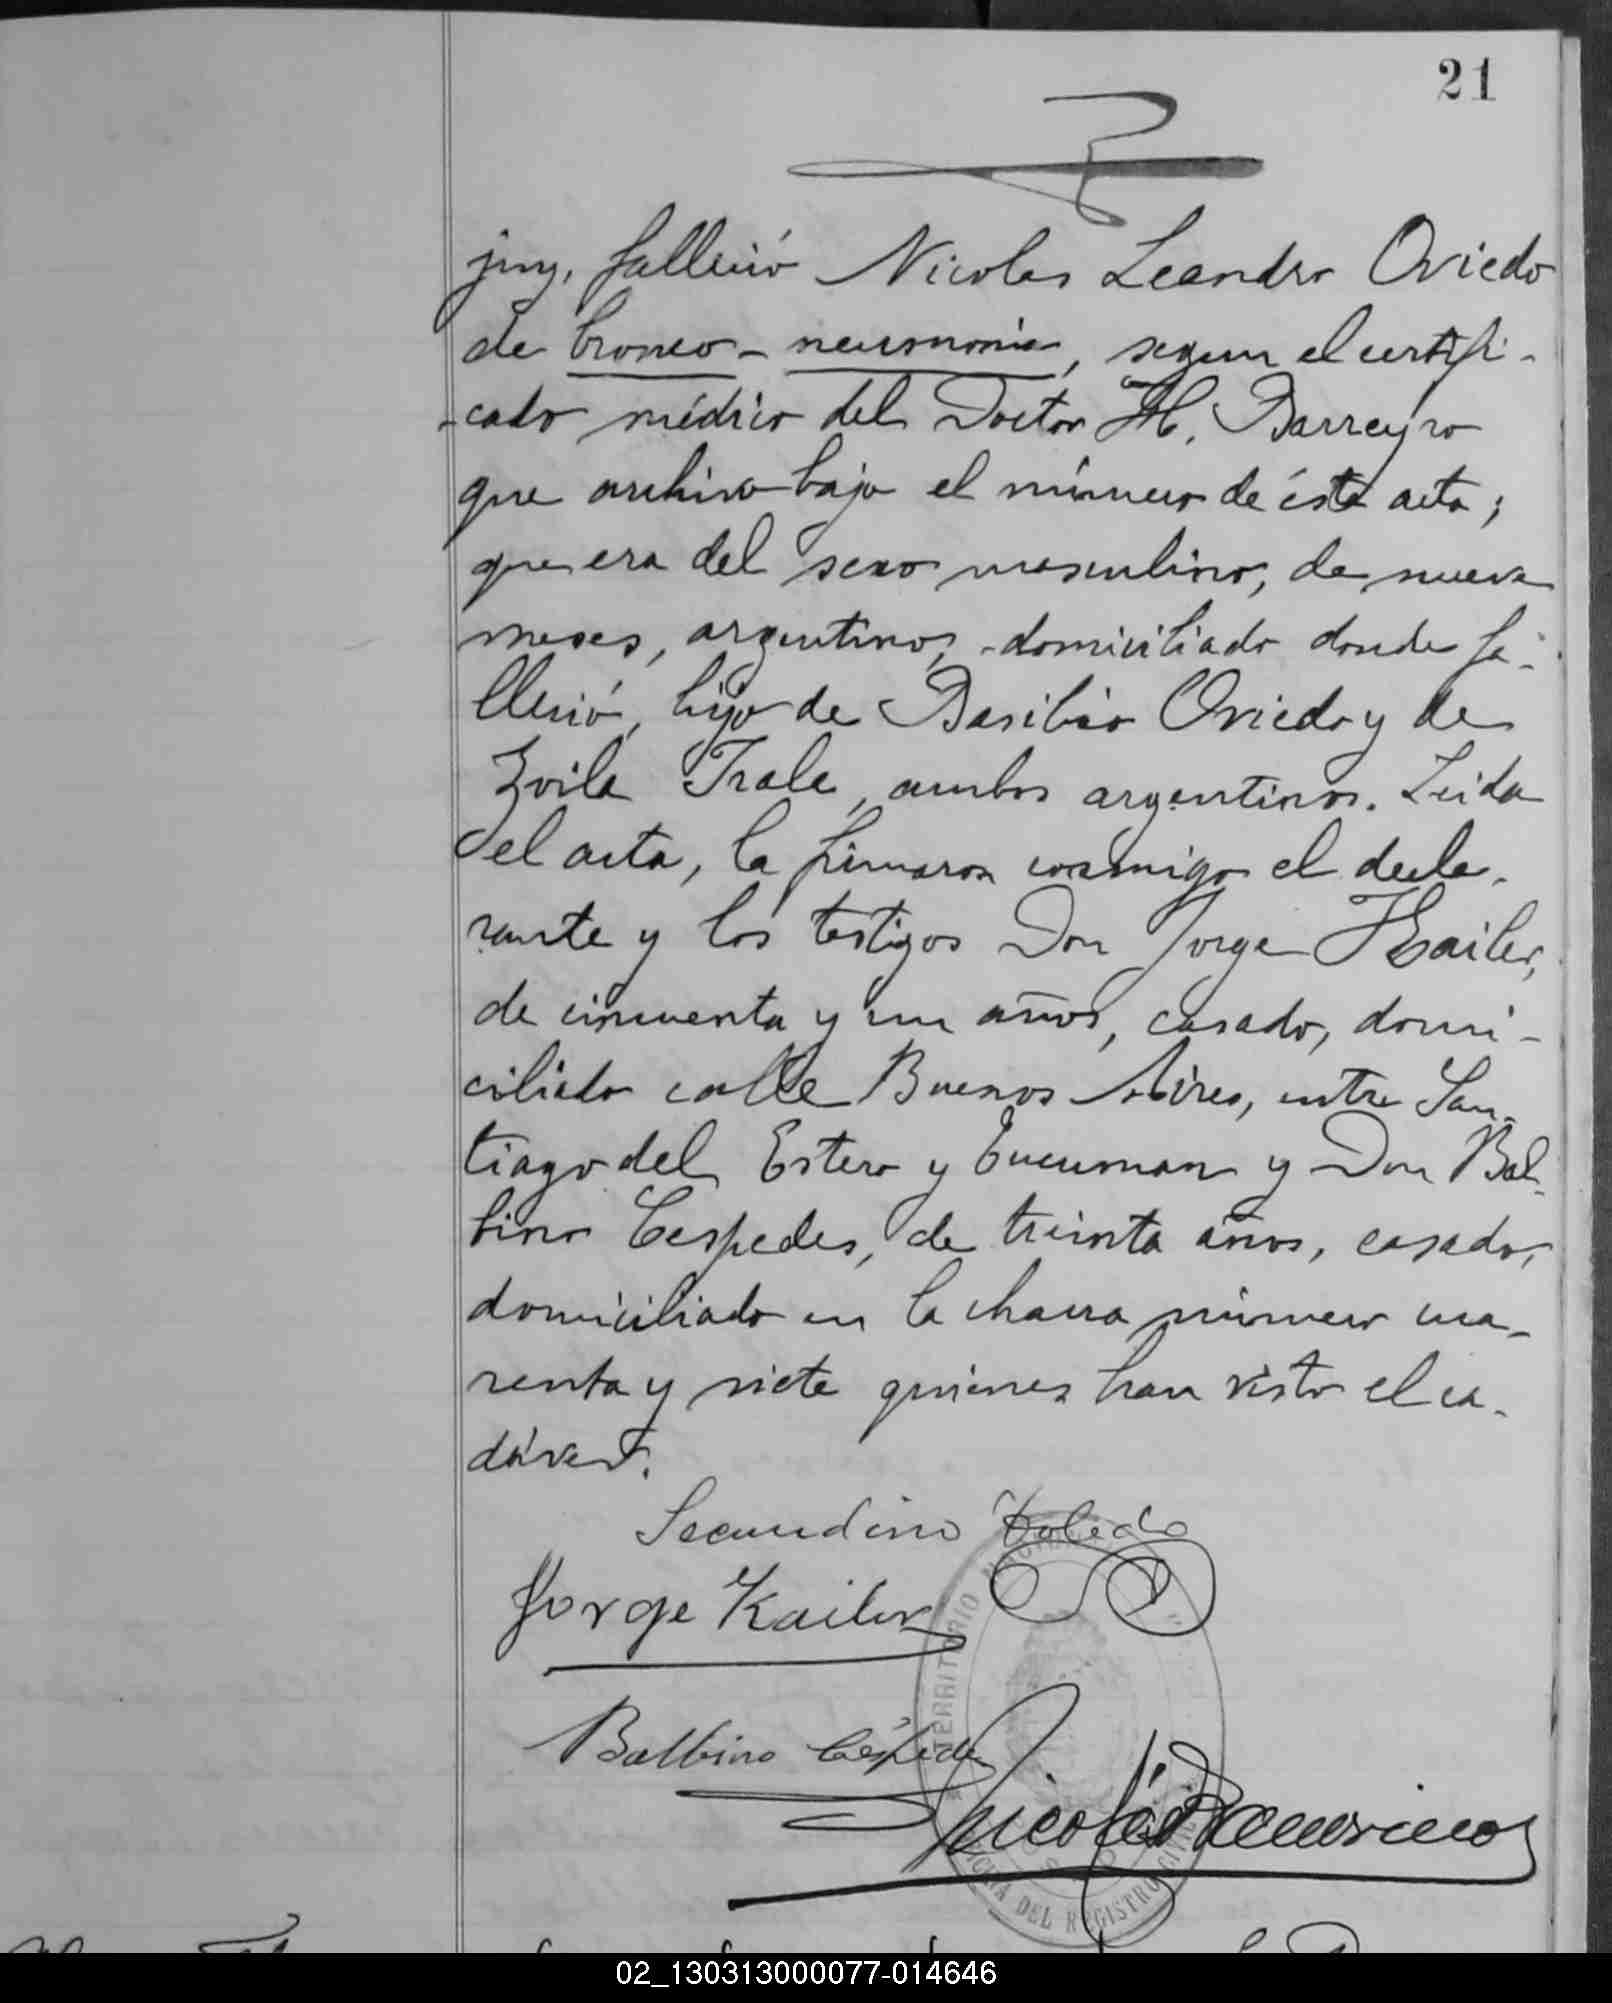 21
juy, falleció Nicolas Leandro Oviedo
de bronco-neumonia, segun el certifi-
-cado médico del Doctor H. Barreyro
que archivo bajo el número de ésta acta;
que era del sexo masculino, de nueve
meses, argentino, domiciliado donde fa-
lleció, hijo de Basilio Oviedo y de
Zoila Irala, ambos argentinos. Leida
el acta, la firmaron conmigo el decla-
rante y los testigos Don Jorge Kailer,
de cincuenta y un años, casado, domi-
ciliado calle Buenos Aires, entre San-
tiago del Estero y Tucuman y Don Bal-
bino Cespedes, de treinta años, casado,
domiciliado en la chacra número cua-
renta y siete quienes han visto el ca-
dáver.
Secundino Toledo
Jorge Kailer
Balbino Céspedes
TERRITORIO NACIONAL
DEL REGISTRO CIVIL
02_130313000077-014646